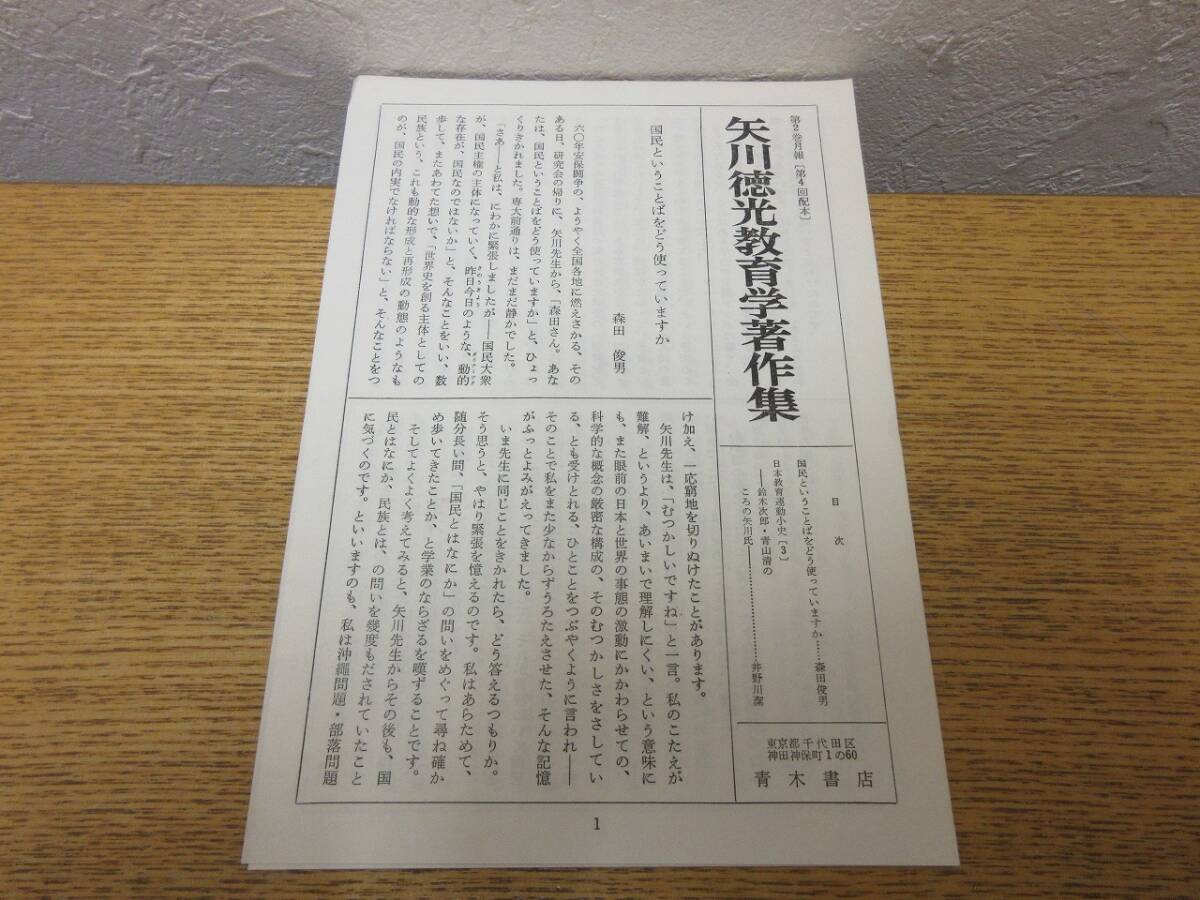 第2巻月報〔第4回配本〕
矢川徳光教育学著作集
目次
国民ということばをどう使っていますか……森田俊男
日本教育運動小史〔3〕
――鈴木次郎・青山清の
ころの矢川氏――……………井野川潔
東京都千代田区
神田神保町1の60
青木書店
国民ということばをどう使っていますか
森田俊男
六〇年安保闘争の、ようやく全国各地に燃えさかる、その
ある日、研究会の帰りに、矢川先生から、「森田さん。あな
たは、国民ということばをどう使っていますか」と、ひょっ
くりきかれました。専大前通りは、まだまだ静かでした。
「さあ――と私は、にわかに緊張しましたが――国民大衆
が、国民主権の主体になっていく、昨日今日のような、動的
きのうきょう
な存在が、国民なのではないか」と、そんなことをいい、数
歩して、またあわてた想いで、「世界史を創る主体としての
民族という、これも動的な形成と再形成の動態のようなも
のが、国民の内実でなければならない」と、そんなことをつ
け加え、一応窮地を切りぬけたことがあります。
矢川先生は、「むつかしいですね」と一言。私のこたえが
難解、というより、あいまいで理解しにくい、という意味に
も、また眼前の日本と世界の事態の激動にかかわらせての、
科学的な概念の厳密な構成の、そのむつかしさをさしてい
る、とも受けとれる、ひとことをつぶやくように言われ――
そのことで私をまた少なからずうろたえさせた、そんな記憶
がふっとよみがえってきました。
いま先生に同じことをきかれたら、どう答えるつもりか。
そう思うと、やはり緊張を憶えるのです。私はあらためて、
随分長い間、「国民とはなにか」の問いをめぐって尋ね確か
め歩いてきたことか、と学業のならざるを嘆ずることです。
そしてよくよく考えてみると、矢川先生からその後も、国
民とはなにか、民族とは、の問いを幾度もだされていたこと
に気づくのです。といいますのも、私は沖縄問題・部落問題
1